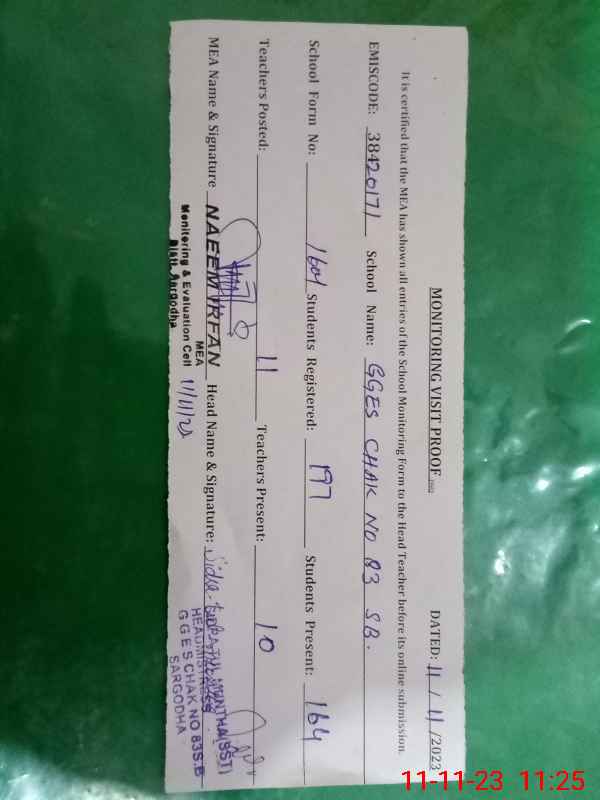 MONITORING VISIT PROOF
DATED: 11 / 11 /2023
It is certified that the MEA has shown all entries of the School Monitoring Form to the Head Teacher before its online submission.
EMISCODE: 38420171 School Name: GGES CHAK NO 83 SB.
School Form No: 1604 Students Registered: 197 Students Present: 164
Teachers Posted: 11 Teachers Present: 10
MEA Name & Signature NAEEM IRFAN Head Name & Signature:
MEA
Monitoring & Evaluation Cell
Distt. Sargodha
11/11/23
MUNTHA(SST)
HEADMISTRESS
GGES CHAK NO 83S.B
SARGODHA
11-11-23 11:25